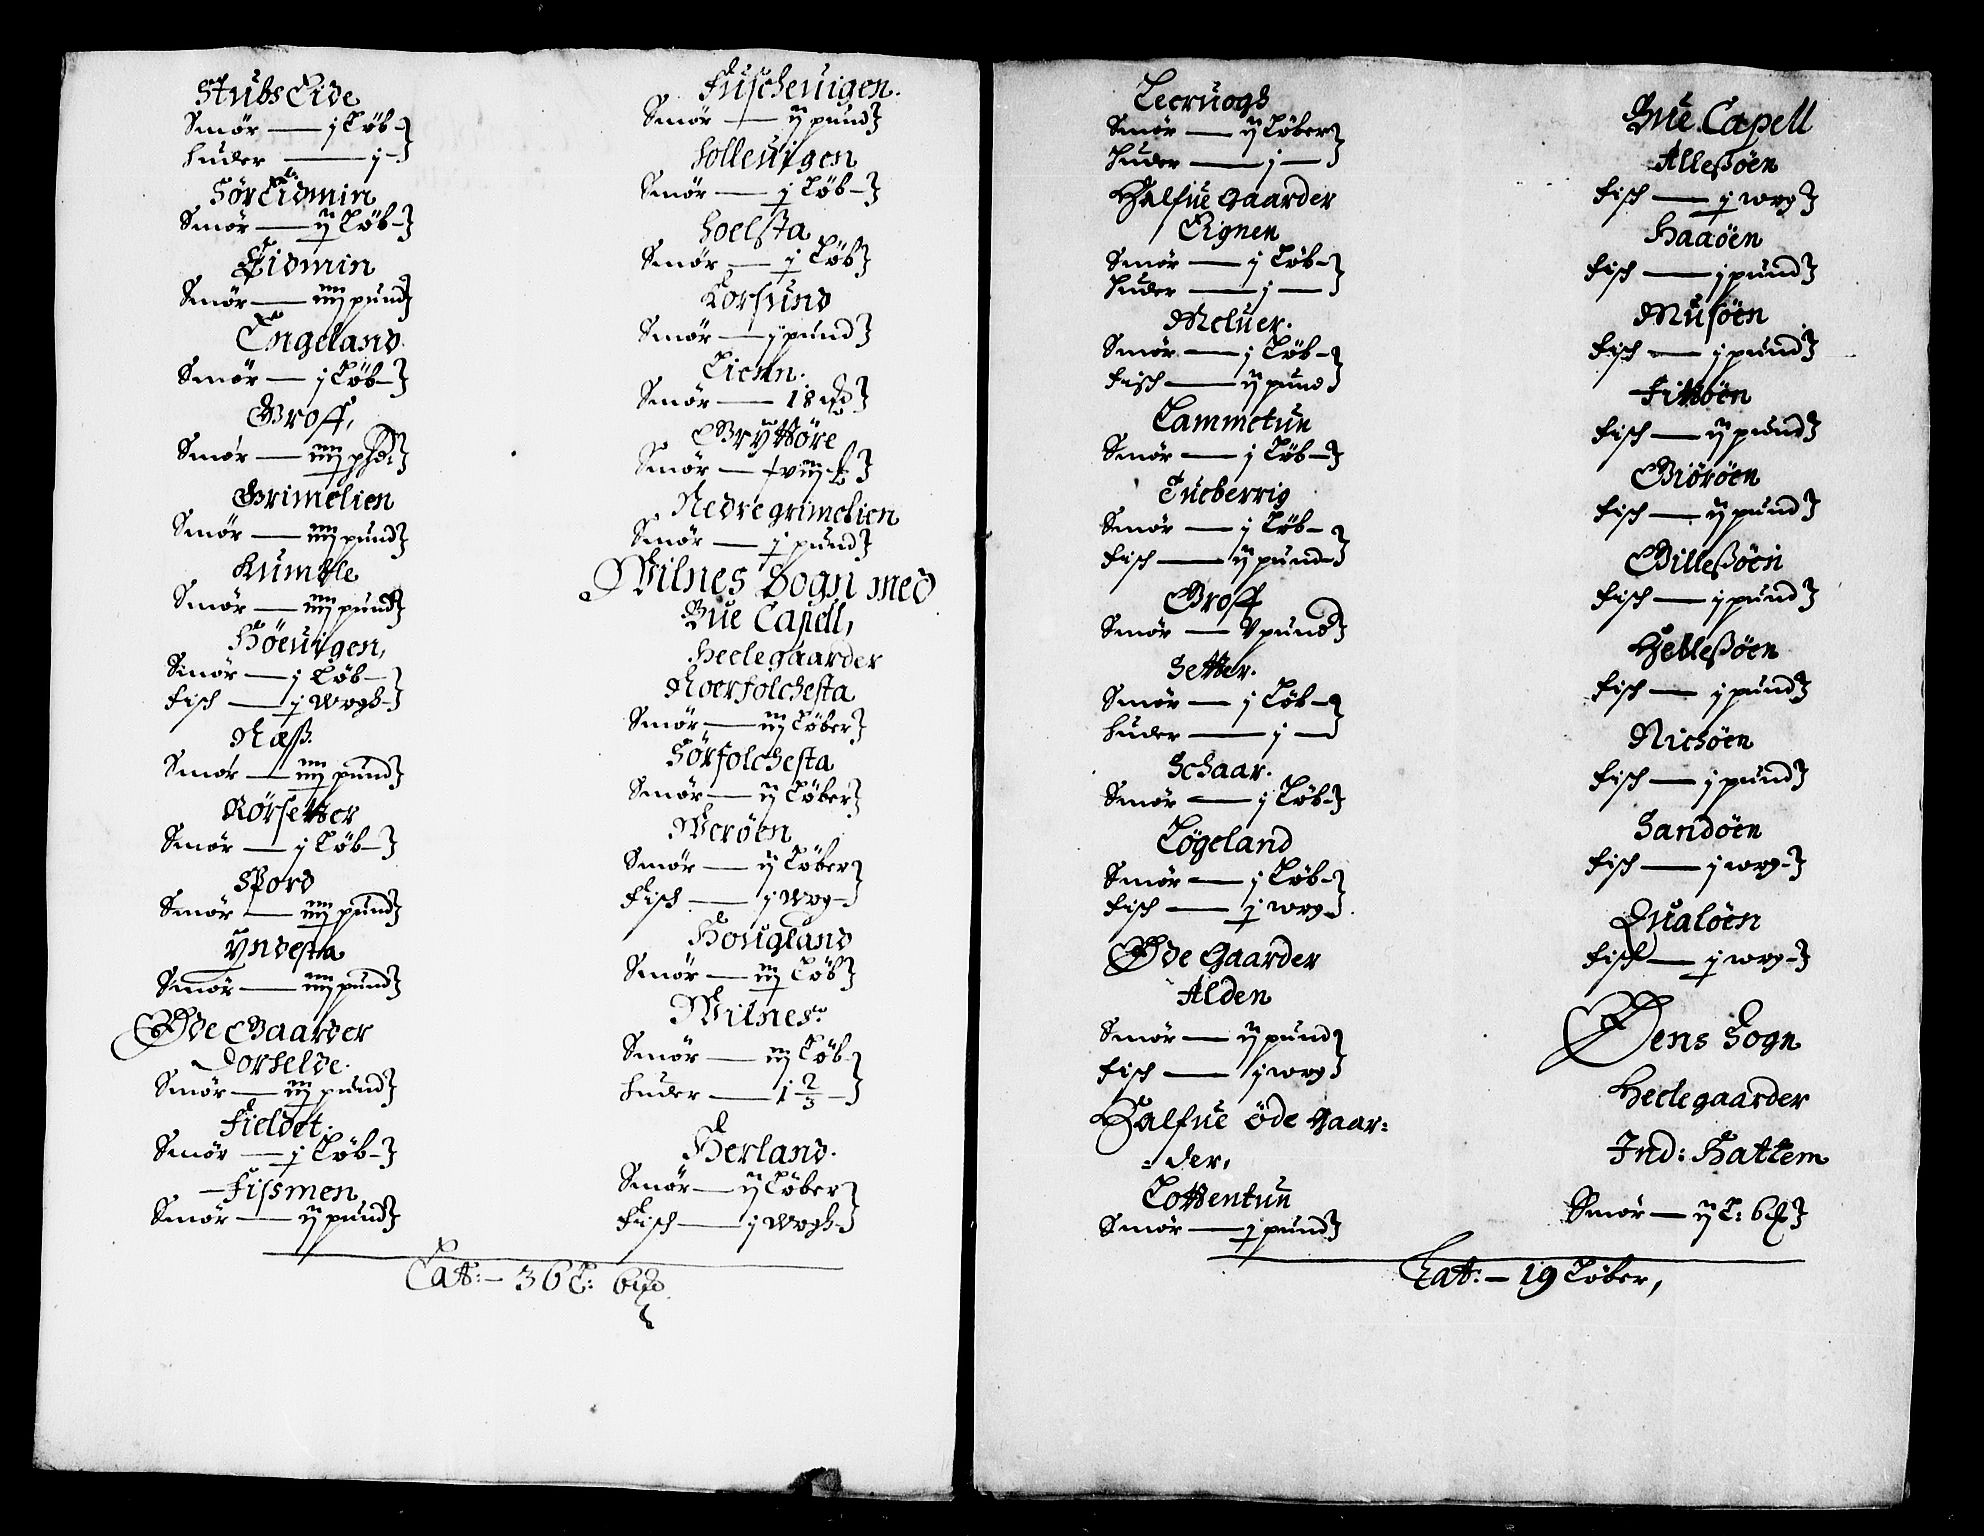 Stubs Eide
Smör — j Löb
Huder — j
Sör Eidmin
Smör — ij Löb
Eidmin
Smör — iiij pund
Engeland
Smör — j Löb
Groff,
Smör — iiij
Grimelien
Smör — iiij pund
Kumble
Smör — iiij pund
Höeuigen,
Smör — j Löb
Fisch — j wogh
Næss
Smör — iiij pund
Rörsetter
Smör — j Löb
Spord
Smör — iiij pund
Yndesta
Smör — iiij pund
Øde Gaarder
Dorhelde.
Smör — iij pund
Fieldet.
Smör — j Löb
Fissmen
Smör — ij pund
Fuscheuigen.
Smör — ij pund
Solleuigen
Smör — j Löb
Hoelsta
Smör — j Löb
Korsund
Smör — j pund
Lienn.
Smör — 18
Gryttöre
Smör —
Nedregrimelien
Smör — j pund
Wilnes Sogn med
Bue Capell,
Heelegaarder
Noerfolchesta
Smör — iij Löber
Sörfolchesta
Smör — ij Löber
Weröen
Smör — ij Löber
Fisch — j wog
Hougland
Smör — iij Löb
Wilnes
Smör — iij Löb
Huder — 1 2/3
Herland.
Smör — ij Löber
Fisch — j wogh
Lat: — 36 L: 6
Leeruogh
Smör — ij Löber
Huder — j
Halfue Gaarder
Eignen
Smör — j Löb
Huder — j
Meluer.
Smör — j Löb
Fisch — ij pund
Lammetun
Smör — j Löb
Tueberrig
Smör — j Löb
Fisch — ij pund
Groff
Smör — V pund
Setter.
Smör — j Löb
Huder — j
Schaar.
Smör — j Löb
Lögeland
Smör — j Löb
Fisch — j wog
Øde Gaarder
Alden
Smör — ij pund
Fisch — j wog
Halfue öde Gaar:
:der,
Lottentun
Smör — j pund
Bue Capell
Allessöen
Fisch — j wog
Haaöen
Fisch — j pund
Musöen
Fisch — j pund
Fittöen
Fisch — ij pund
Giöröen
Fisch — ij pund
Gillessöen
Fisch — j pund
Hellessöen
Fisch — j pund
Nichöen
Fisch — j pund
Sandöen
Fisch — j wog
Qualöen
Fisch — j wog
Øens Sogn
Heelegaarder
Ind: Hattem
Smör — ij L: 6
Lat: — 19 Löber,